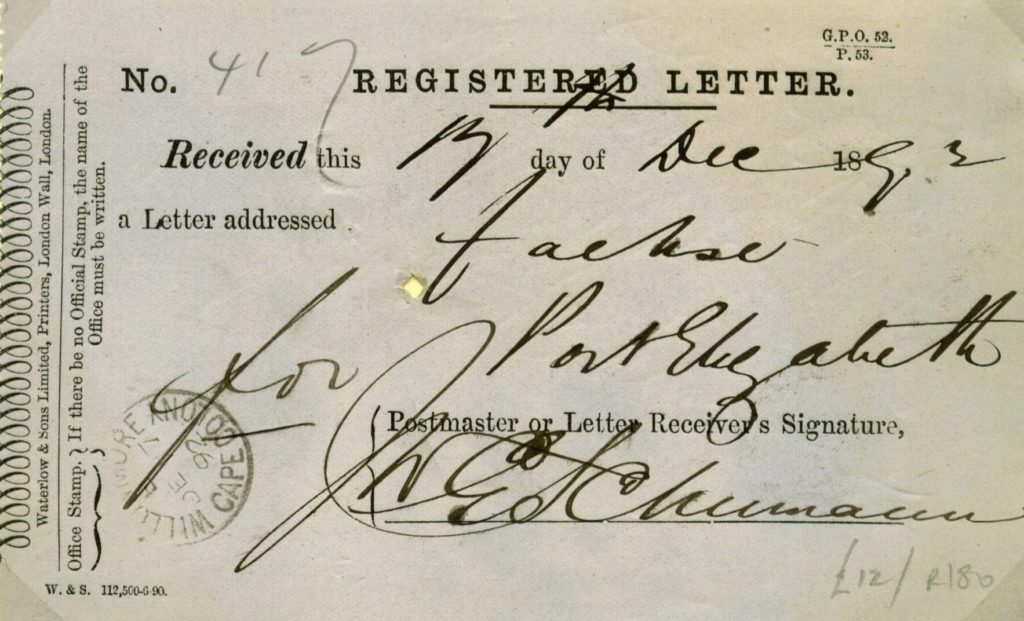 G.P.O. 52.
P. 53.
No. 417 REGISTERED LETTER.
Received this 17th day of Dec 1892
a Letter addressed
Port Elizabeth
for
Postmaster or Letter Receiver's Signature,
Schumann
WILL MORE
CAPE COLONY
DE
Office Stamp. } If there be no Official Stamp, the name of the
Office must be written.
Waterlow & Sons Limited, Printers, London Wall, London.
W. & S. 112,500-6-90.
£12/ R180